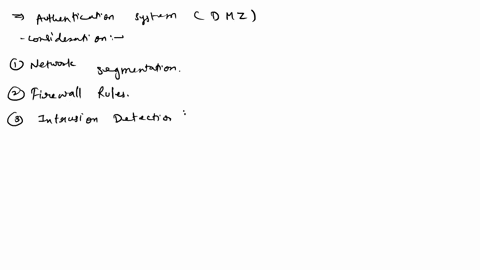 ⇒ Authentication system (DMZ)
- consideration:-
① Network segmentation.
② Firewall Rules.
③ Intrusion Detection :